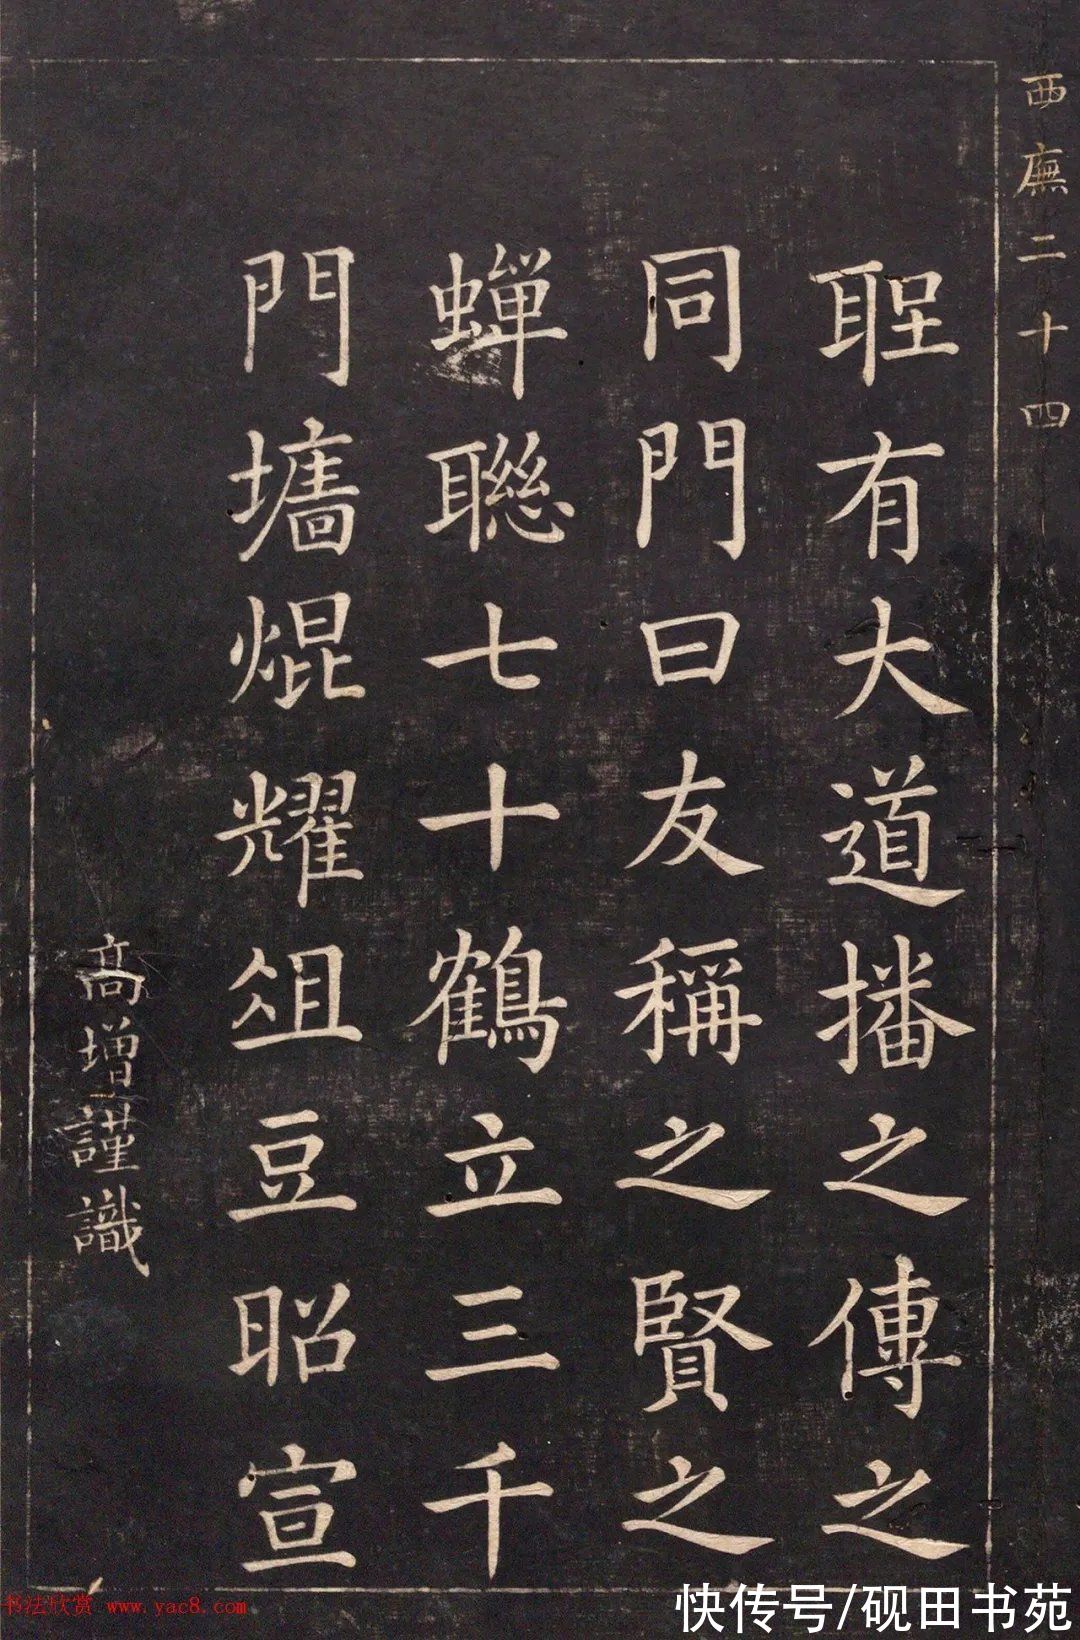 西廡二十四
聖有大道播之傳之
同門曰友稱之賢之
蟬聯七十鶴立三千
門墻焜耀俎豆昭宣
高增謹識
书法欣赏 www.yac8.com
快传号/砚田书苑